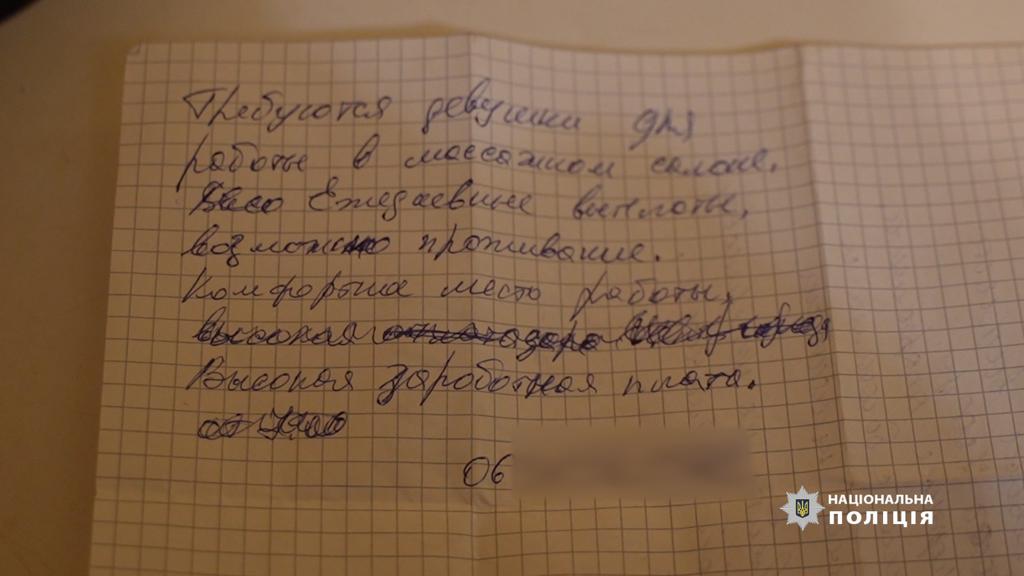 Требуются девушки для
работы в массажном салоне.
Ежедневные выплаты,
возможно проживание.
Комфортна место работы,
высокая
Высокая заработная плата.
06
НАЦІОНАЛЬНА
ПОЛІЦІЯ